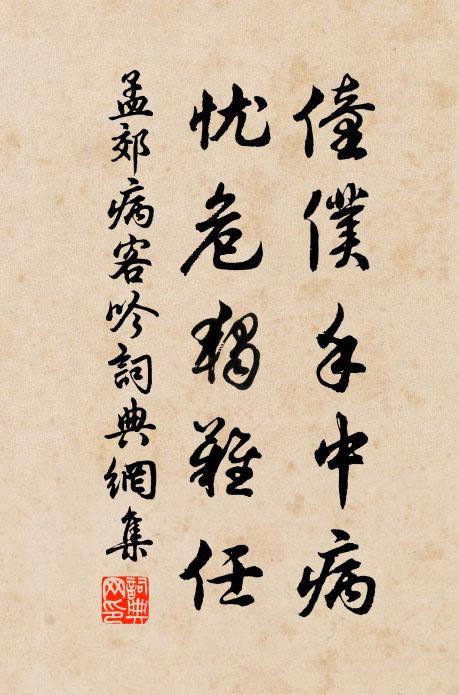 僮僕手中病
忧危獨難任
孟郊病客吟詞典網集
詞典網印